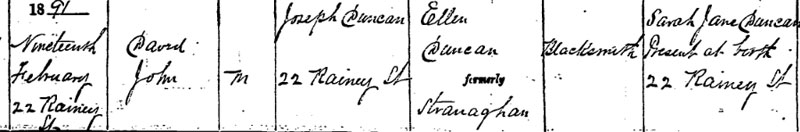 1891
Nineteenth
February
22 Rainey
St
David
John
M
Joseph Duncan
22 Rainey St
Ellen
Duncan
formerly
Stranaghan
Blacksmith
Sarah Jane Duncan
Present at birth
22 Rainey St